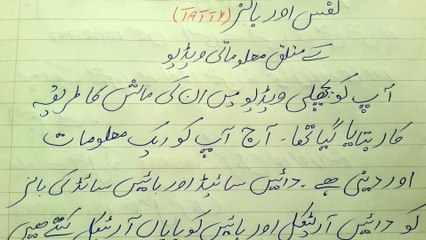 نفس اور بالز (TATTY)
کے متعلق معلوماتی ویڈیو
آپ کو پچھلی ویڈیو میں ان کی مالش کا طریقہ
کار بتایا گیا تھا۔ آج آپ کو ایک معلومات
اور دینی ہے۔ دائیں سائیڈ اور بائیں سائڈ کی بالز
کو دائیں آرٹیکل اور بائیں کو بایاں آرٹیکل کہتے ہیں